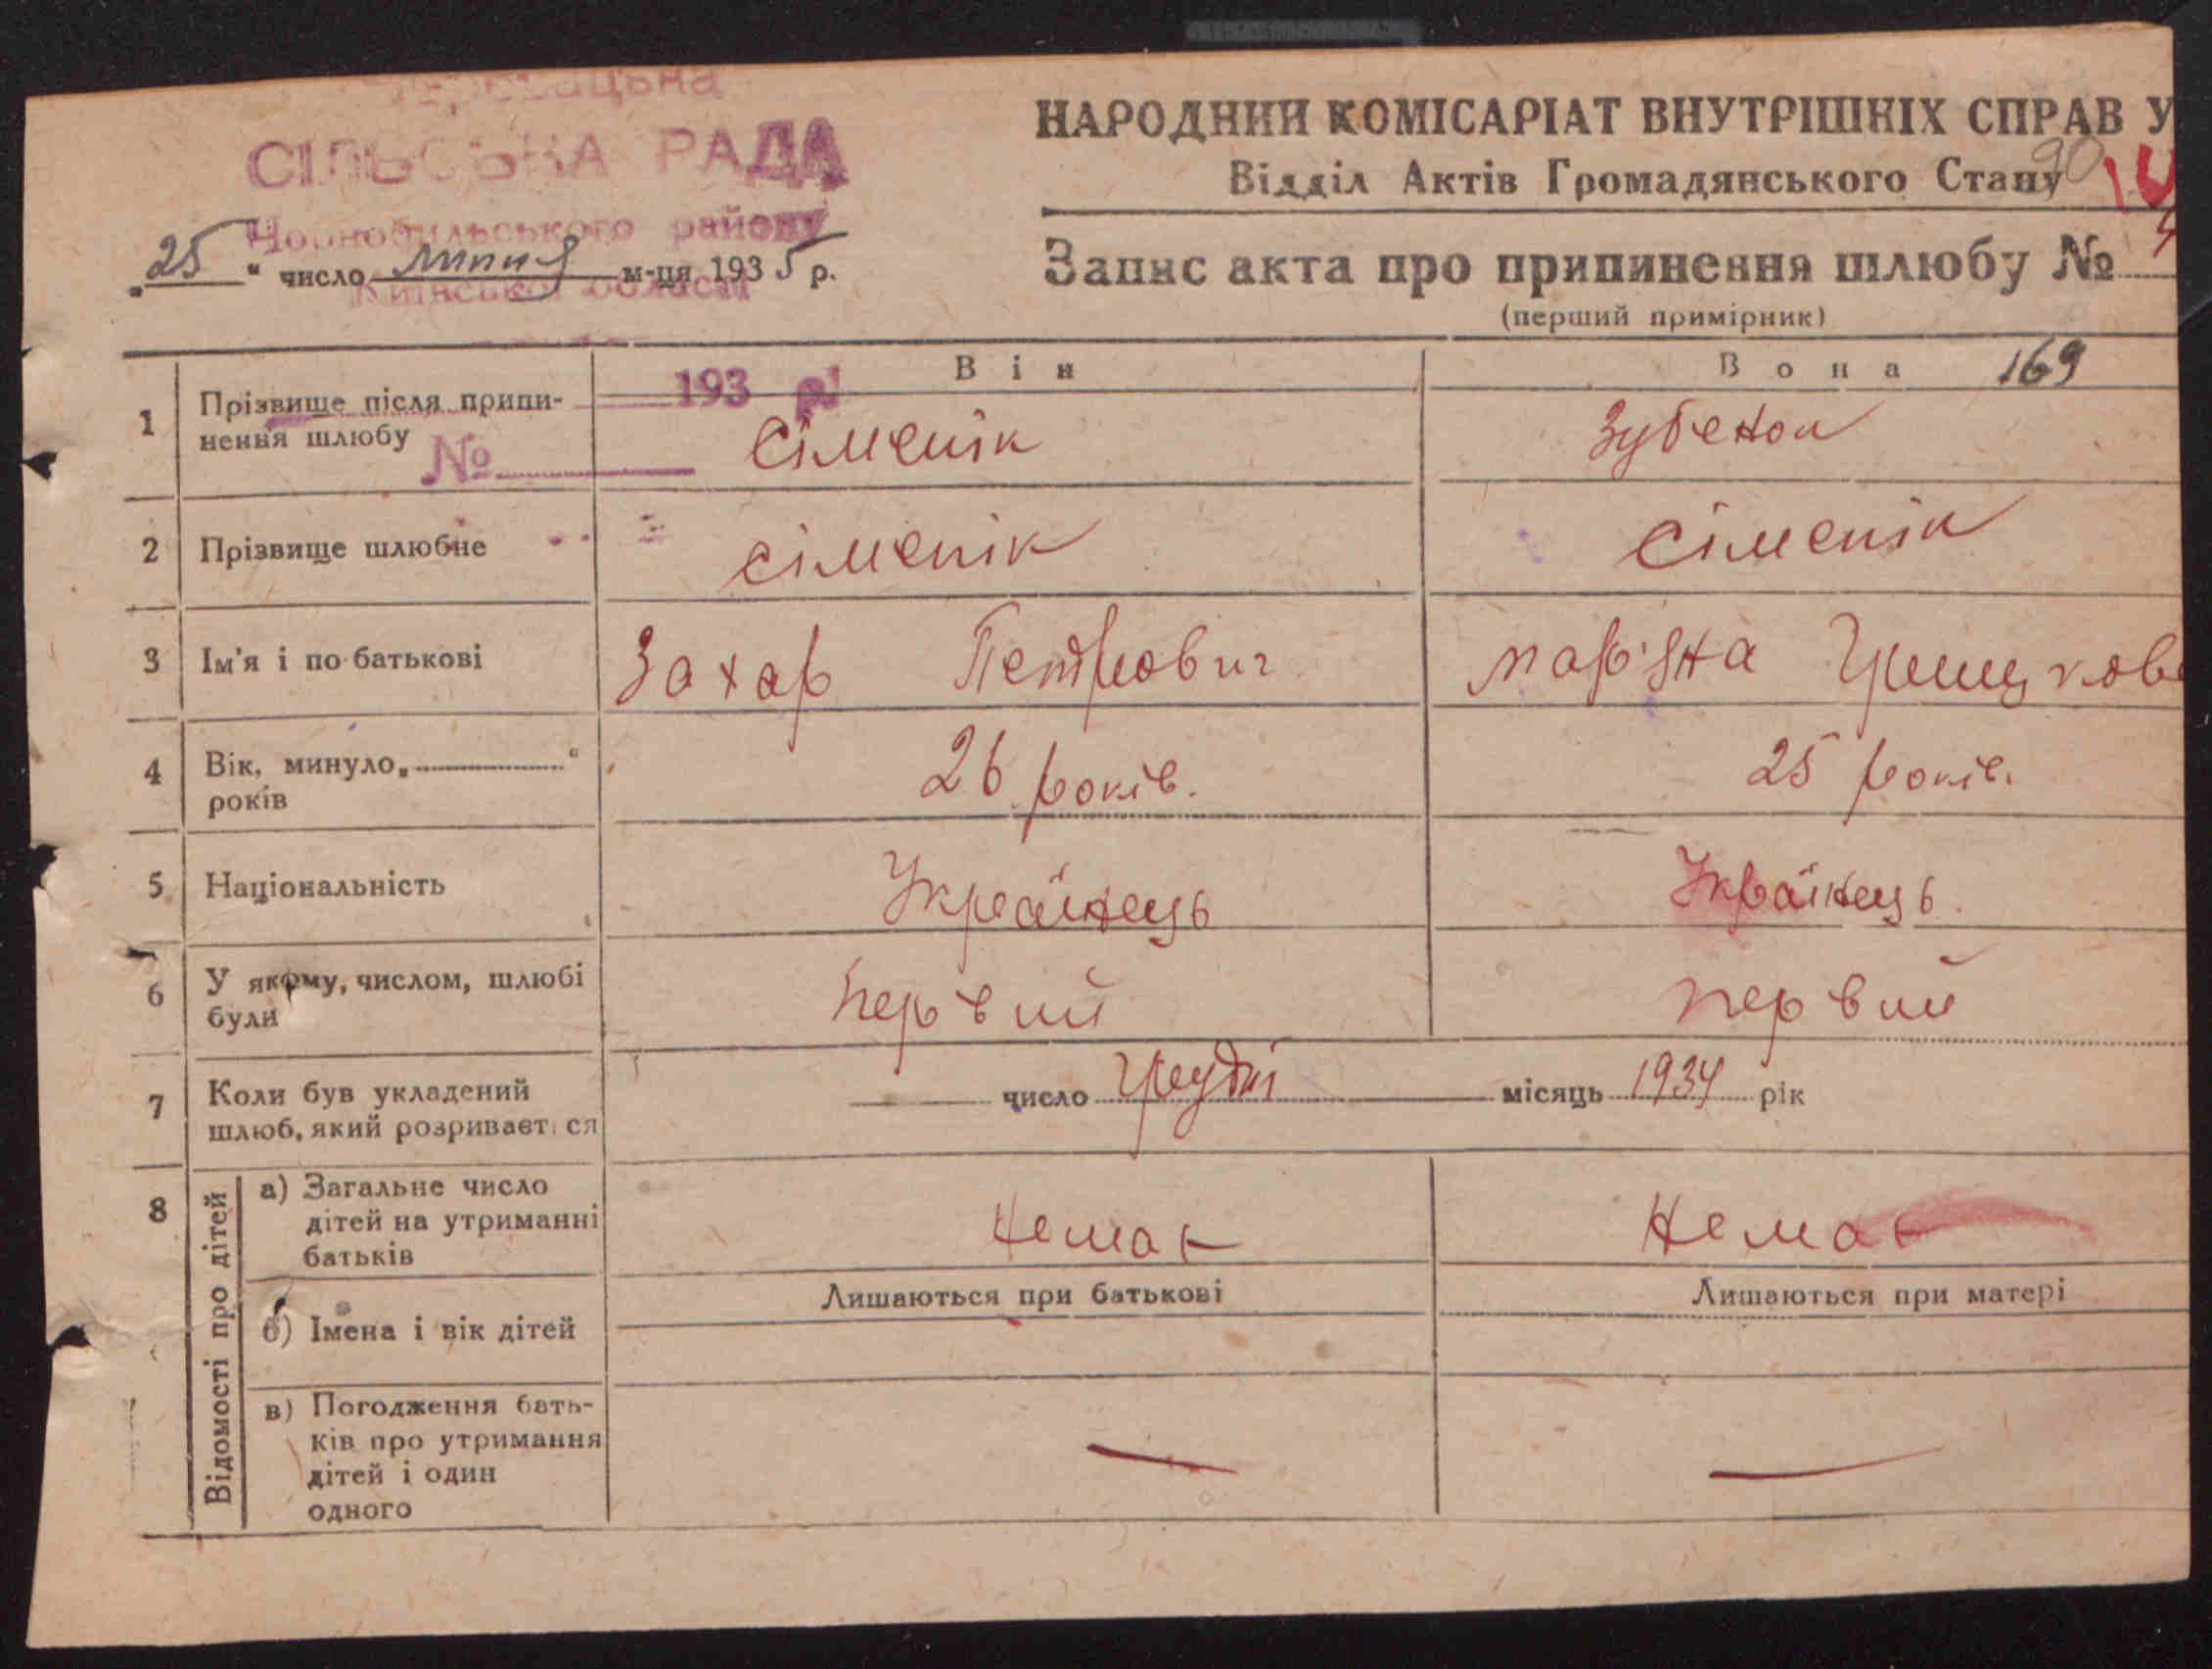 СІЛЬСЬКА РАДА
Чорнобильського району
Київської області
193 р.
№
НАРОДНИЙ КОМІСАРІАТ ВНУТРІШНІХ СПРАВ У
Відділ Актів Громадянського Стану
90
"25" число липня м-ця 1935 р.
Запис акта про припинення шлюбу №
(перший примірник)
Він
Вона 169
1 Прізвище після припи-
нення шлюбу
Сіменік
Зубенок
2 Прізвище шлюбне
Сіменік
Сіменік
3 Ім'я і по батькові
Захар Петрович
Мар'яна
4 Вік, минуло „ “
років
26 років.
25 років.
5 Національність
Українець
Українець.
6 У якому, числом, шлюбі
були
первий
первий
7 Коли був укладений
шлюб, який розривається
число Грудні місяць 1934 рік
8 Відомості про дітей
а) Загальне число
дітей на утриманні
батьків
Немає
Немає
б) Імена і вік дітей
Лишаються при батькові
Лишаються при матері
в) Погодження бать-
ків про утримання
дітей і один
одного